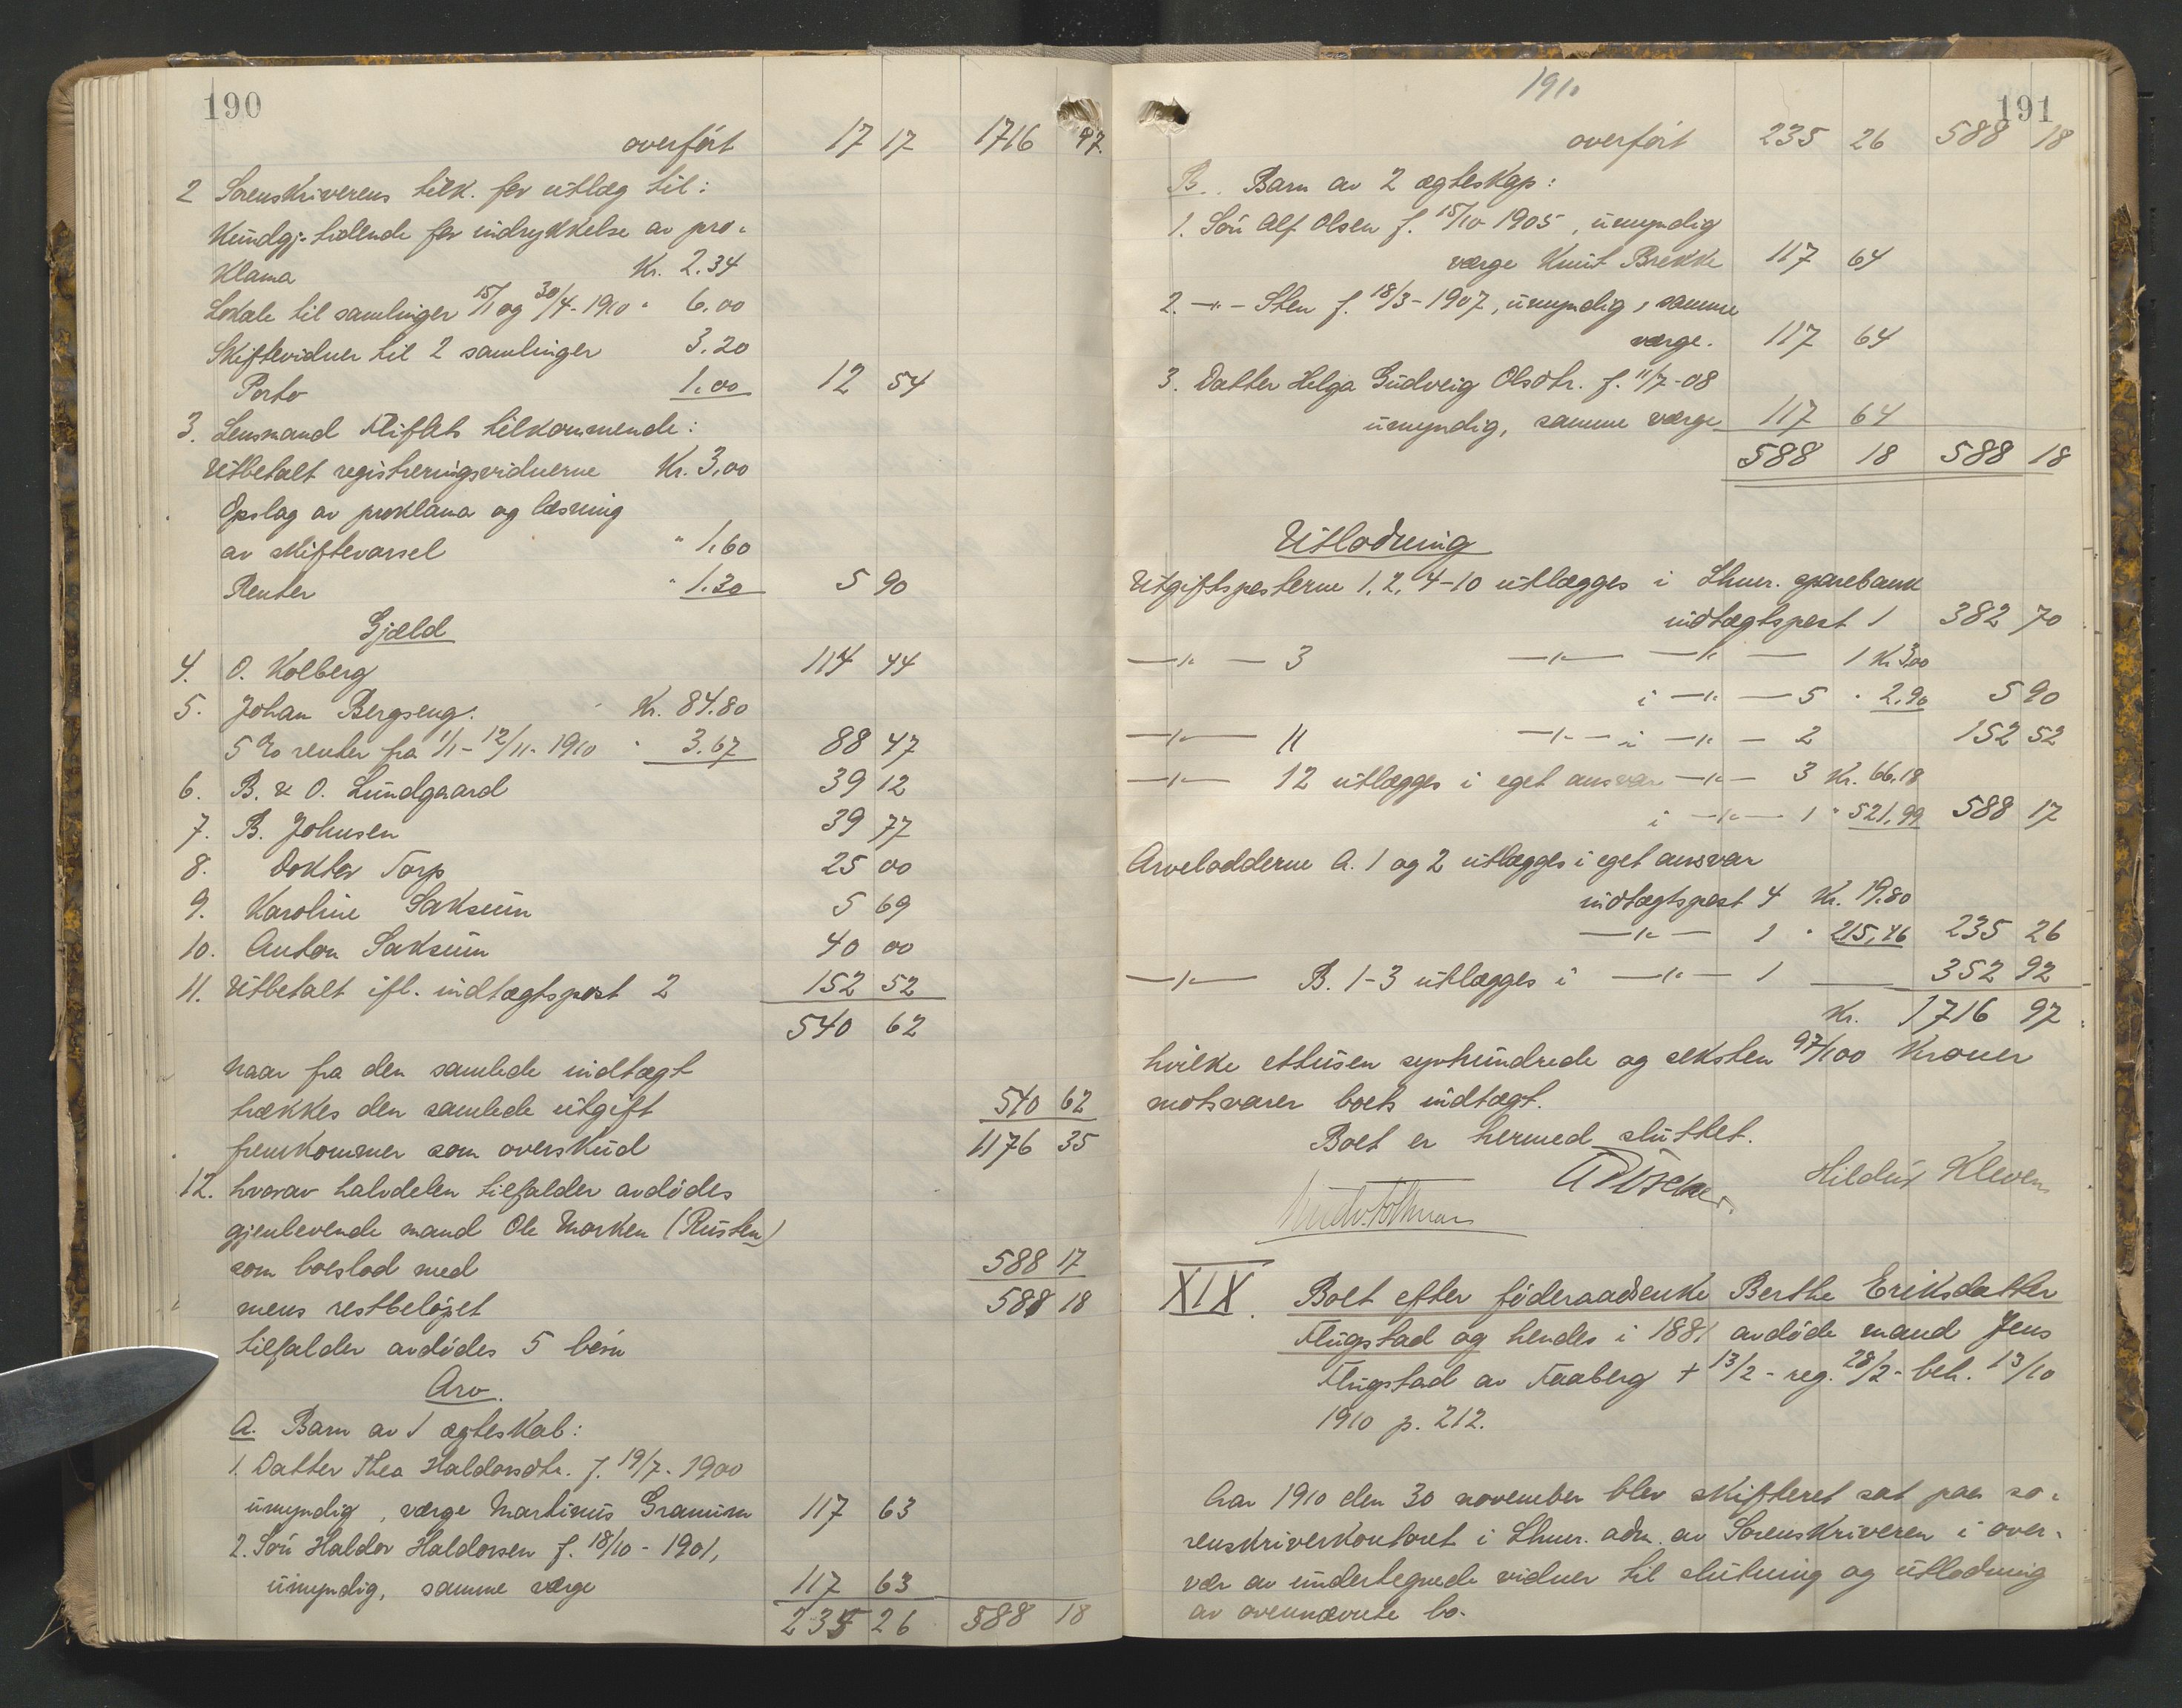 190
overført 17 17 1716 97
2 Sorenskriverens tilk. for utlæg til:
Kundgj. tidende for indrykkelse av pro-
klama Kr. 2.34
Lokale til samlinger 15/1 og 30/4-1910 " 6.00
Skiftevidner til 2 samlinger 3.20
Porto 1.00 12 54
3. Lensmand Fliflets tilkommende:
Utbetalt registreringsvidnerne Kr. 3,00
Opslag av proklama og læsning
av skiftevarsel " 1.60
Renter " 1.30 5 90
Gjæld
4. O. Kolberg 114 44
5. Johan Bergseng. Kr. 84.80
5 % renter fra 1/1-12/11-1910 " 3.67 88 47
6. B. & O. Lundgaard 39 12
7. B. Johnsen 39 77
8. Doktor Torp 25 00
9. Karoline Saksum 5 69
10. Anton Saksum 40 00
11. Utbetalt ifl. indtægtspost 2 152 52
540 62
Naar fra den samlede indtægt
trækkes den samlede utgift 540 62
fremkommer som overskud 1176 35
12. hvorav halvdelen tilfalder avdødes
gjenlevende mand Ole Morken (Rusten)
som boeslod med 588 17
mens restbeløpet 588 18
tilfalder avdødes 5 børn
Arv.
A. Barn av 1 ægteskab:
1. Datter Thea Haldorsdtr. f. 19/7-1900
umyndig, værge Martinus Granum 117 63
2. Søn Haldor Haldorsen f. 18/10-1901,
umyndig, samme værge 117 63
235 26 588 18
1910
191
overført 235 26 588 18
B. Barn av 2 ægteskap:
1. Søn Alf Olsen f. 15/10 1905, umyndig
værge Knut Brekke 117 64
2. -"- Sten f. 18/3-1907, umyndig, samme
værge. 117 64
3. Datter Helga Gudveig Olsdtr. f. 11/7-08
umyndig, samme værge 117 64
588 18 588 18
Utlodning
Utgiftsposterne 1, 2, 4-10 utlægges i Lhmr. sparebank
indtægtspost 1 382 70
-"- - 3 -"- -"- - 1 Kr 3,00
i -"- - 5 " 2,90 5 90
-"- 11 -"- i -"- - 2 152 52
-"- 12 utlægges i eget ansvar -"- 3 Kr. 66.18
i -"- 1 " 521,99 588 17
Arvelodderne A. 1 og 2 utlægges i eget ansvar
indtægtspost 4 Kr. 19.80
-"- 1 " 215,46 235 26
-"- B. 1-3 utlægges i -"- 1 352 92
Kr. 1716 97
hvilke ettusen syvhundrede og seksten 97/100 Kroner
motsvarer boets indtægt.
Boet er hermed sluttet.
Hildur Kleven
XIX. Boet efter føderaadsenke Berthe Eriksdatter
Flugstad og hendes i 1881 avdøde mand Jens
Flugstad av Faaberg + 13/2 - reg. 28/2 - beh. 13/10
1910 p. 212.
Aar 1910 den 30 november blev skifteret sat paa so-
renskriverkontoret i Lhmr. adm. av Sorenskriveren i over-
vær av undertegnede vidner til slutning og utlodning
av ovennævnte bo.